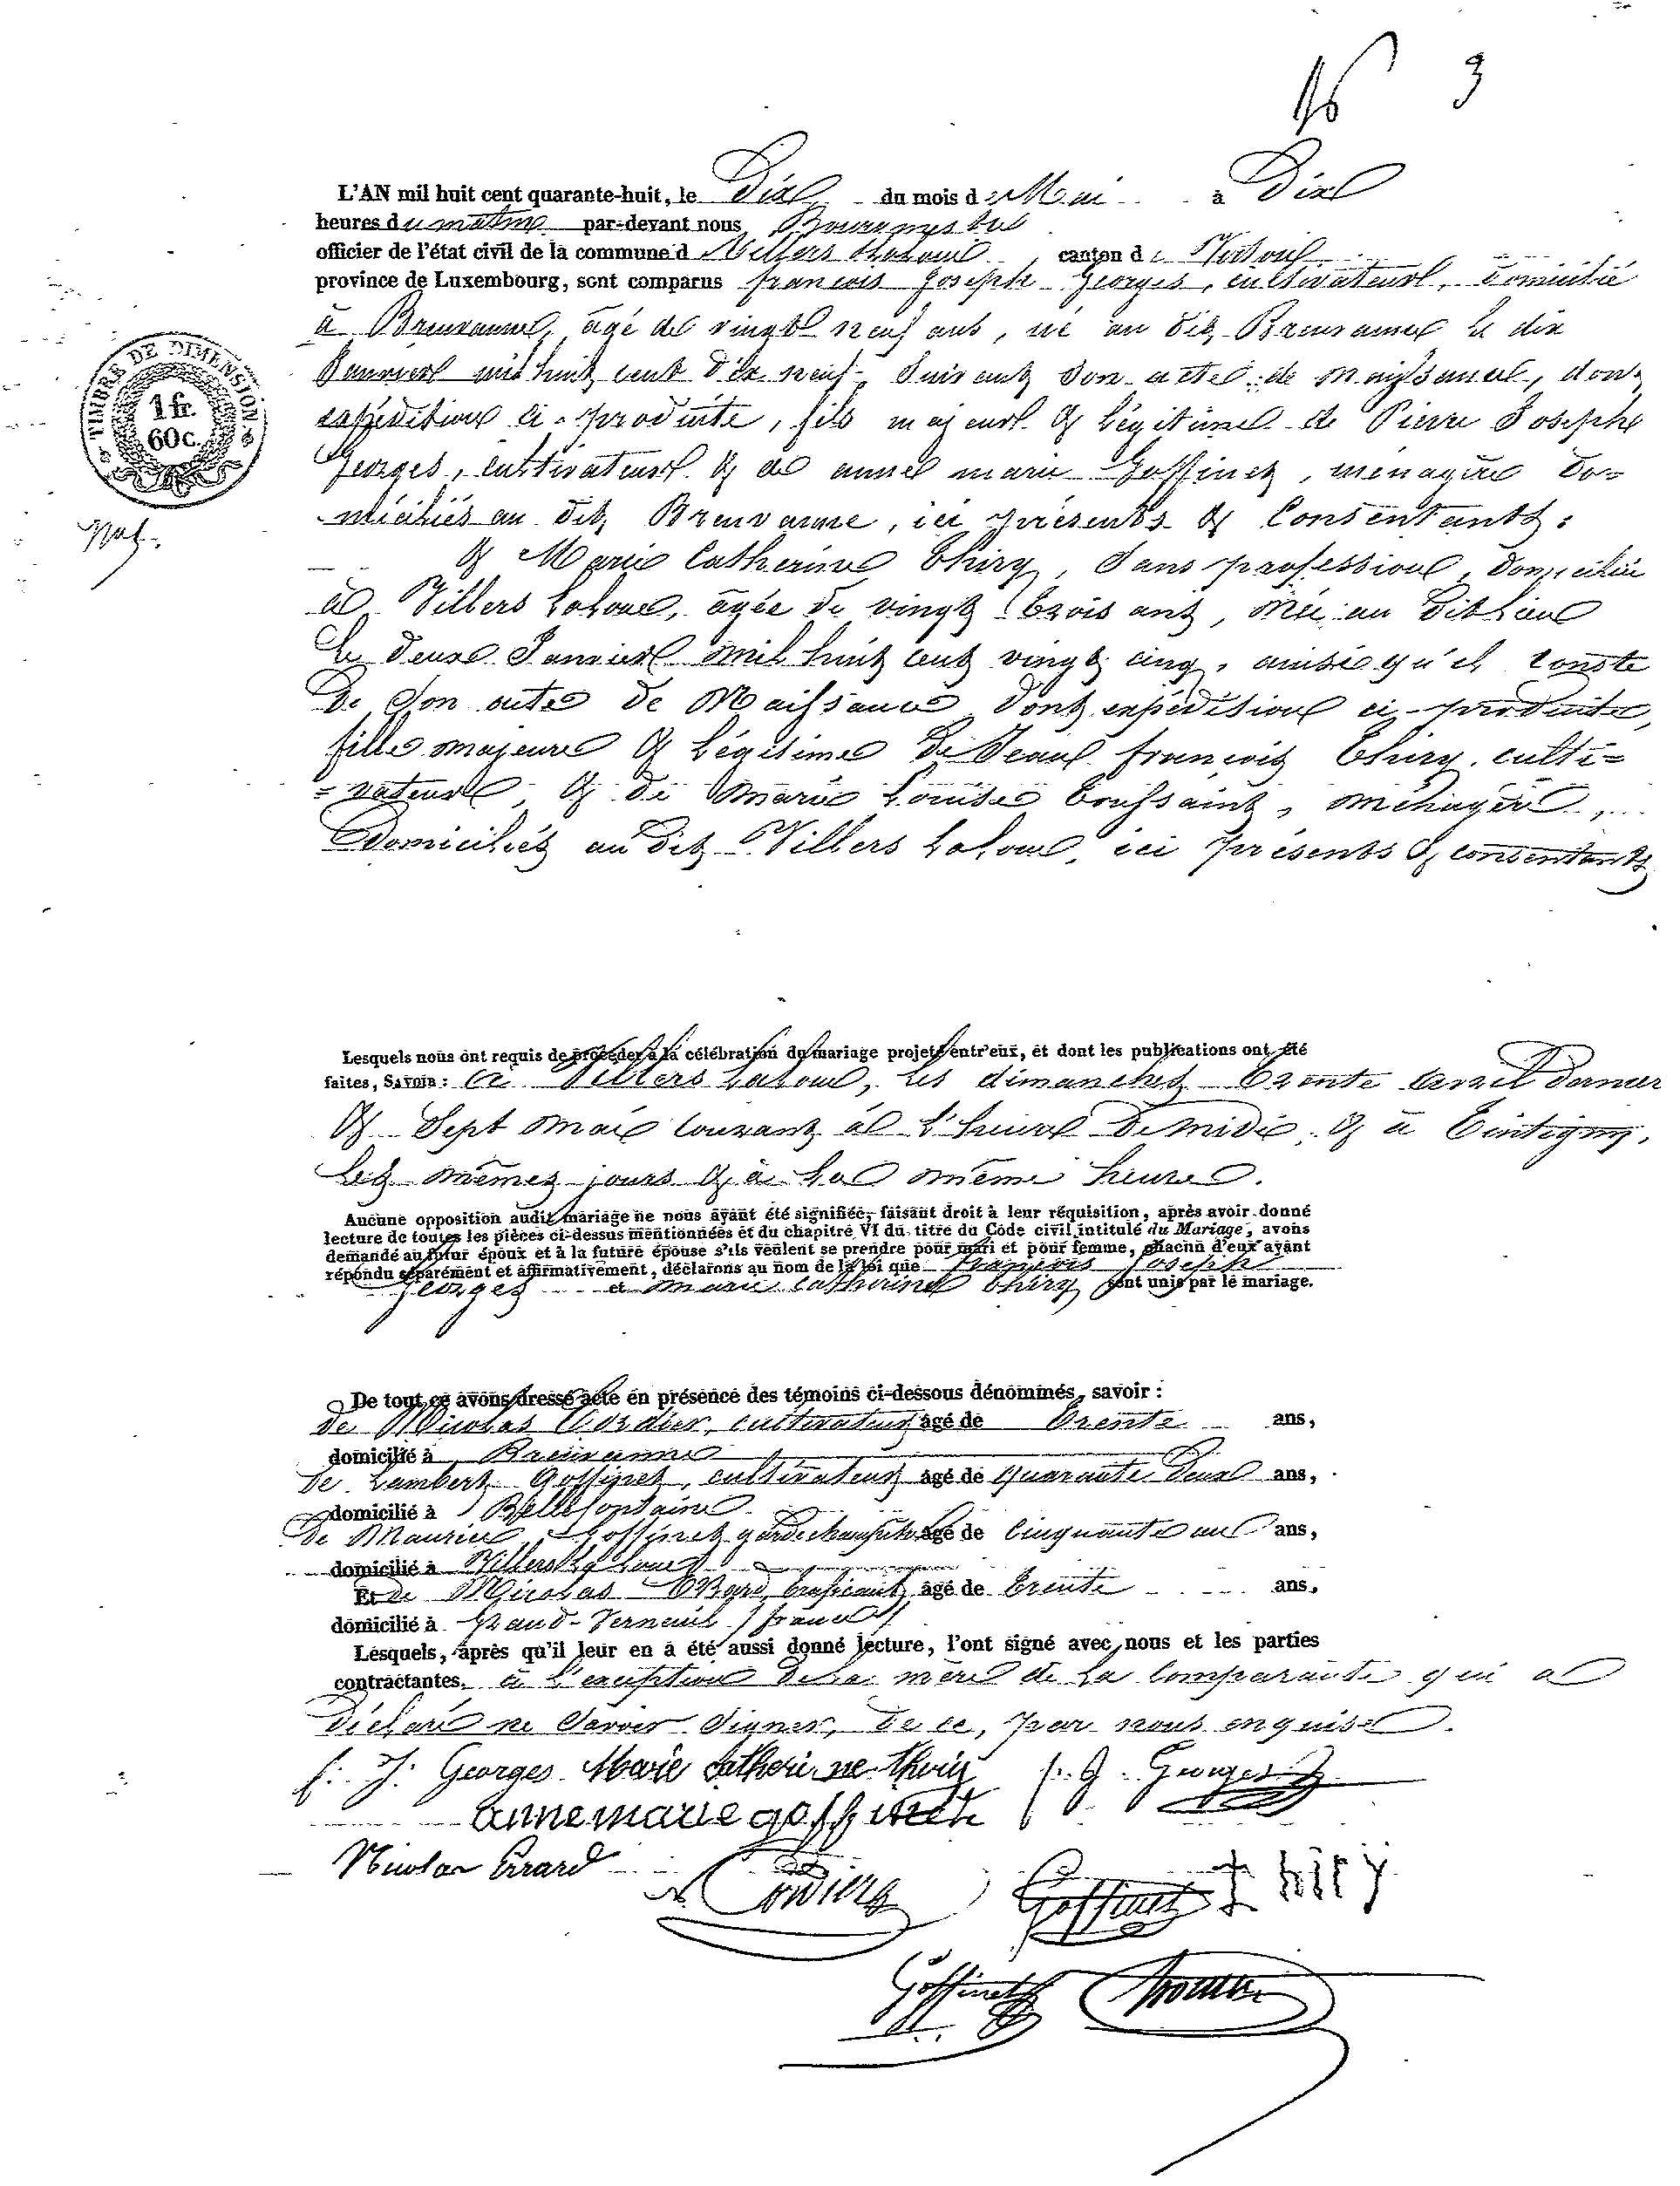 No 3
L'AN mil huit cent quarante-huit, le Dix du mois de Mai à Dix
heures du matin par-devant nous Bourgmestre
officier de l'état civil de la commune d Villers laloue, canton de Virton
province de Luxembourg, sont comparus françois Joseph Georges, cultivateur, domicilié
à Breuvanne, agé de vingt neuf ans, né au dit Breuvanne le dix
Janvier mil huit cent dix neuf, suivant son acte de naissance, dont
expédition ci-produite, fils majeur & légitime de Pierre Joseph
Georges, cultivateur & de anne marie Goffinet, ménagère do-
miciliés au dit Breuvanne, ici présents & Consentants;
& Marie Catherine Thiry, sans profession, domiciliée
à Villers laloue, agée de vingt trois ans, née au dit lieu
le deux Janvier mil huit cent vingt cinq, ainsi qu'il conste
de son acte de Naissance dont expédition ci-produite,
fille majeure & légitime de Jean françois Thiry, culti=
=vateur, & de Marie Louise Toussaint, ménagère,
Domiciliés au dit Villers laloue, ici présents & consentants
TIMBRE DE DIMENSION
1 fr.
60 c.
Lesquels nous ont requis de procéder à la célébration du mariage projeté entr'eux, et dont les publications ont été
faites, SAVOIR : à Villers laloue, les dimanches trente avril dernier
& Sept Mai courant à l'heure de midi, & à Tintigny,
les mêmes jours & à la même heure.
Aucune opposition audit mariage ne nous ayant été signifiée, faisant droit à leur réquisition, après avoir donné
lecture de toutes les pièces ci-dessus mentionnées et du chapitre VI du titre du Code civil intitulé du Mariage, avons
demandé au futur époux et à la future épouse s'ils veulent se prendre pour mari et pour femme, chacun d'eux ayant
répondu séparément et affirmativement, déclarons au nom de la loi que françois Joseph
Georges et marie catherine thiry sont unis par le mariage.
De tout ce avons dressé acte en présence des témoins ci-dessous dénommés, savoir :
de Nicolas Cordier, cultivateur agé de trente ans,
domicilié à Breuvanne
de Lambert Goffinet, cultivateur agé de quarante deux ans,
domicilié à Bellefontaine
de Maurice Goffinet garde champêtre agé de cinquante un ans,
domicilié à Villers la loue
Et de Nicolas Errard, trafiquant agé de trente ans,
domicilié à Grand-Verneuil (france)
Lesquels, après qu'il leur en a été aussi donné lecture, l'ont signé avec nous et les parties
contractantes, à l'exception de la mère de la comparante qui a
déclaré ne savoir signer, de ce, par nous enquise.
f. J. Georges Marie Catherine thiry p. J. Georges
anne marie goffinet
Nicolas Errard N Cordier Goffinet Thiry
Goffinet